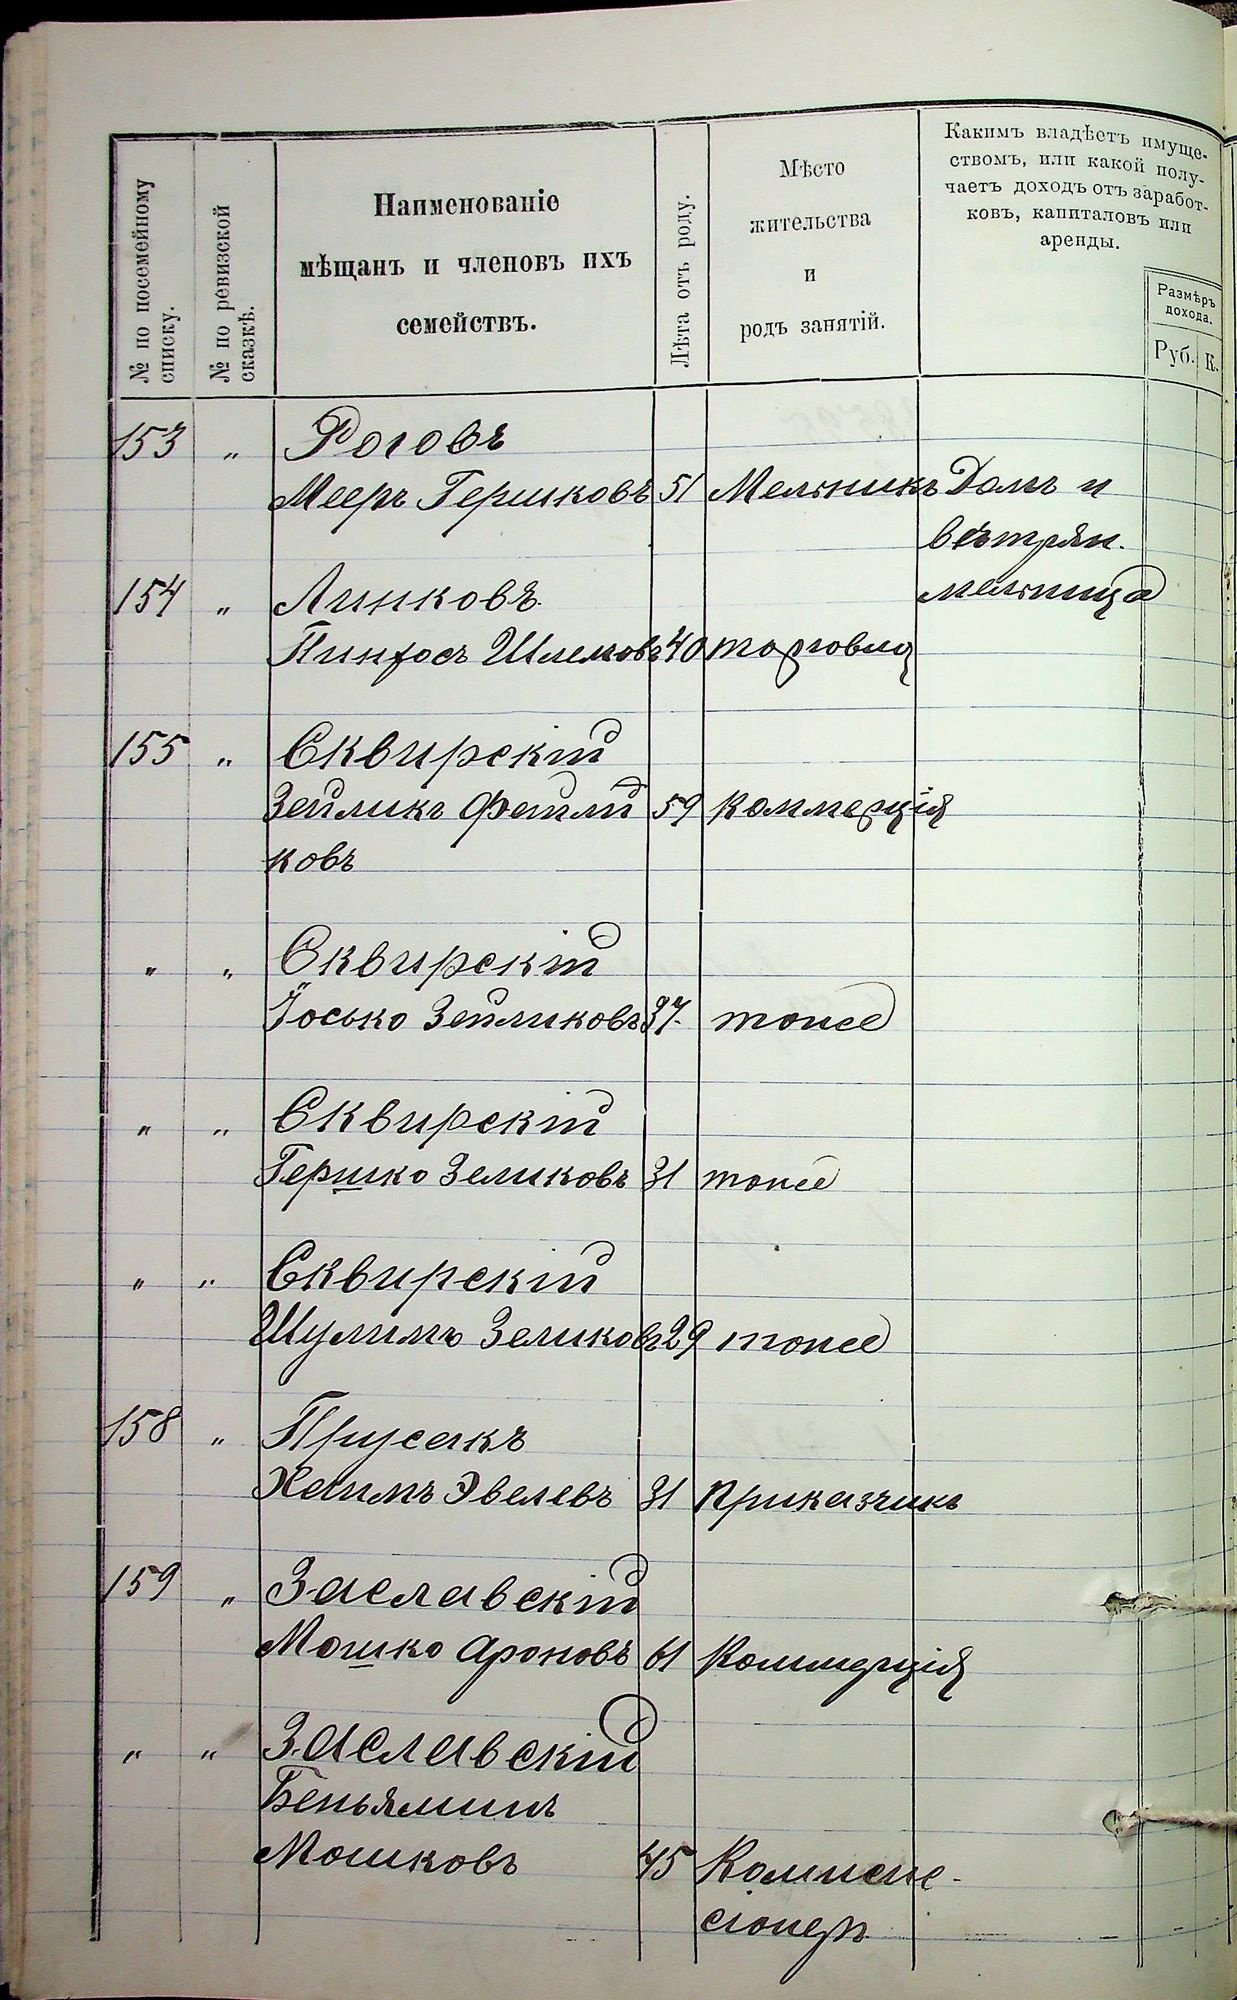 № по посемейному
списку.
№ по ревизской
сказкѣ.
Наименованіе
мѣщанъ и членовъ ихъ
семействъ.
Лѣта отъ роду.
Мѣсто
жительства
и
родъ занятій.
Какимъ владѣетъ имуще-
ствомъ, или какой полу-
чаетъ доходъ отъ заработ-
ковъ, капиталовъ или
аренды.
Размѣръ
дохода.
Руб. К.
153 „ Роговъ
Мееръ Гершковъ 51 Мельникъ Домъ и
вѣтрян.
154 „ Линковъ мельница
Пинхосъ Шлемовъ 40 торговля
155 „ Сквирскій
Зейликъ Файли 59 коммерція
ковъ
„ „ Сквирскій
Іосько Зейликовъ 37 тоже
„ „ Сквирскій
Гершко Зеликовъ 31 тоже
„ „ Сквирскій
Шулимъ Зеликовъ 29 тоже
158 „ Прусакъ
Хаимъ Эвелевъ 31 приказчикъ
159 „ Заславскій
Мошко Ароновъ 61 Коммерція
„ „ Заславскій
Беньяминъ
Мошковъ 45 Комисс-
сіонеръ